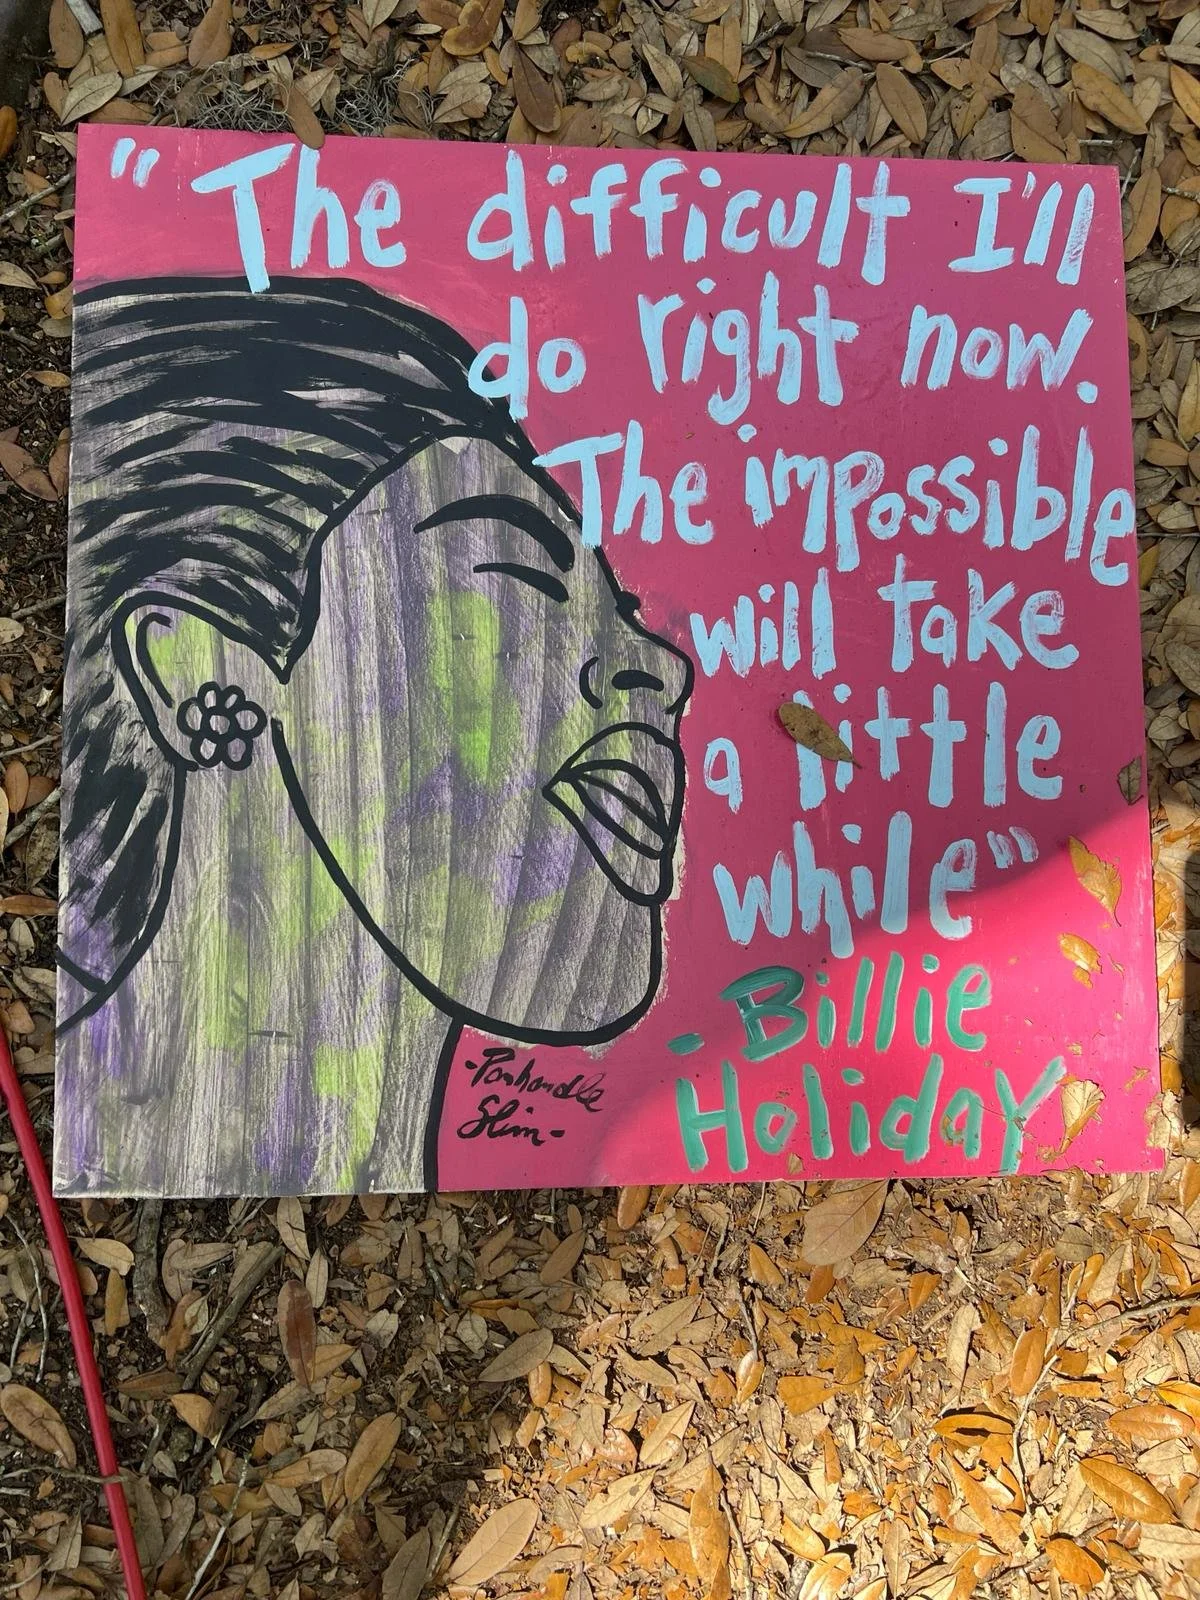 "The difficult I'll
do right now.
The impossible
will take
a little
while"
- Billie
Holiday
-Panhandle
Slim-